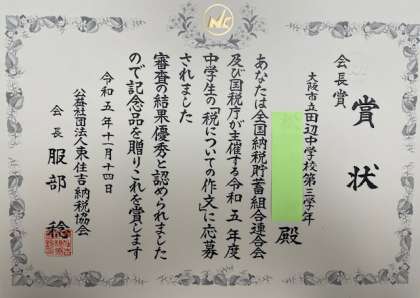 賞状
会長賞
大阪市立田辺中学校第三学年
殿
あなたは全国納税貯蓄組合連合会
及び国税庁が主催する令和五年度
中学生の「税についての作文」に応募
されました
審査の結果優秀と認められました
ので記念品を贈りこれを賞します
令和五年十一月十四日
公益社団法人東住吉納税協会
会長 服部 稔